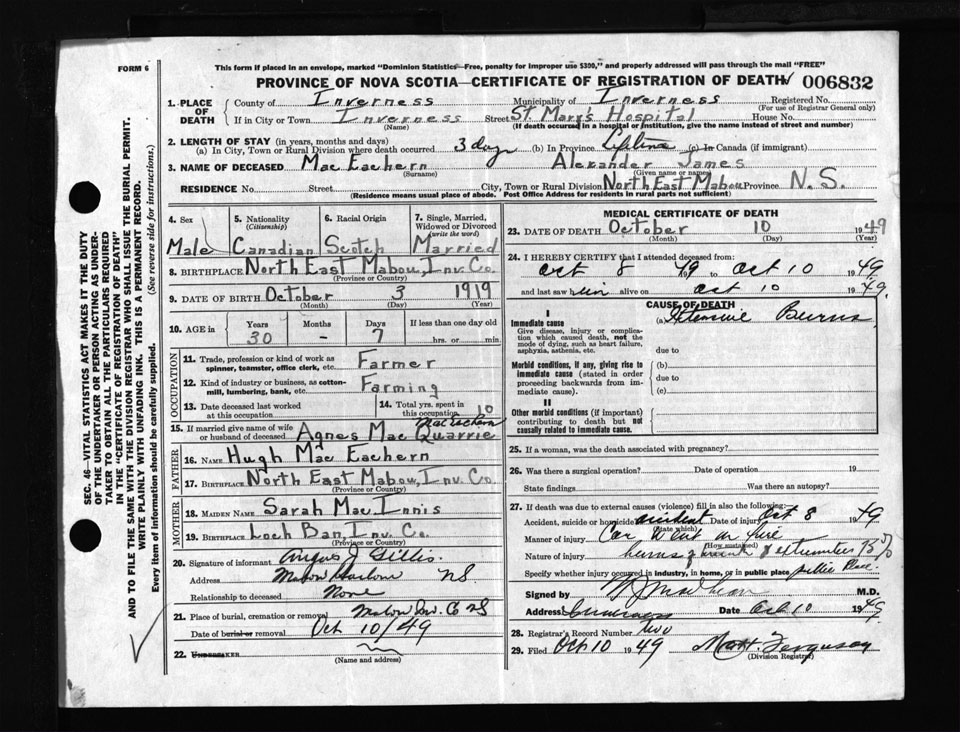 FORM 6
This form if placed in an envelope, marked "Dominion Statistics—Free, penalty for improper use $300," and properly addressed will pass through the mail "FREE"
PROVINCE OF NOVA SCOTIA—CERTIFICATE OF REGISTRATION OF DEATH 006832
1. PLACE OF DEATH County of Inverness Municipality of Inverness Registered No.
(For use of Registrar General only)
If in City or Town Inverness Street St. Marys Hospital House No.
(Name) (If death occurred in a hospital or institution, give the name instead of street and number)
2. LENGTH OF STAY (in years, months and days)
(a) In City, Town or Rural Division where death occurred 3 days (b) In Province Lifetime (c) In Canada (if immigrant)
3. NAME OF DECEASED Mac Eachern Alexander James
(Surname) (Given name or names)
RESIDENCE No. Street City, Town or Rural Division North East Mabou Province N.S.
(Residence means usual place of abode. Post Office Address for residents in rural parts not sufficient)
4. Sex Male
5. Nationality (Citizenship) Canadian
6. Racial Origin Scotch
7. Single, Married, Widowed or Divorced (write the word) Married
8. BIRTHPLACE North East Mabou, Inv. Co.
(Province or Country)
9. DATE OF BIRTH October 3 1919
(Month) (Day) (Year)
10. AGE in Years Months Days If less than one day old
30 - 7 hrs. or min.
OCCUPATION
11. Trade, profession or kind of work as spinner, teamster, office clerk, etc. Farmer
12. Kind of industry or business, as cotton-mill, lumbering, bank, etc. Farming
13. Date deceased last worked at this occupation
14. Total yrs. spent in this occupation 10
15. If married give name of wife or husband of deceased Agnes Mac Quarrie MacEachern
FATHER
16. NAME Hugh Mac Eachern
17. BIRTHPLACE North East Mabou, Inv. Co.
(Province or Country)
MOTHER
18. MAIDEN NAME Sarah Mac Innis
19. BIRTHPLACE Loch Ban, Inv. Co.
(Province or Country)
20. Signature of informant Angus J Gillis
Address Mabou Harbour NS
Relationship to deceased None
21. Place of burial, cremation or removal Mabou Inv. Co NS
Date of burial or removal Oct 10/49
22. UNDERTAKER
(Name and address)
MEDICAL CERTIFICATE OF DEATH
23. DATE OF DEATH October 10 1949
(Month) (Day) (Year)
24. I HEREBY CERTIFY that I attended deceased from:
Oct 8 49 to Oct 10 1949
and last saw him alive on Oct 10 1949
CAUSE OF DEATH
I
Immediate cause (a) Extensive Burns
Give disease, injury or complication which caused death, not the mode of dying, such as heart failure, asphyxia, asthenia, etc.
due to
Morbid conditions, if any, giving rise to immediate cause (stated in order proceeding backwards from immediate cause).
(b)
due to
(c)
II
Other morbid conditions (if important) contributing to death but not causally related to immediate cause.
25. If a woman, was the death associated with pregnancy?
26. Was there a surgical operation? Date of operation 19
State findings Was there an autopsy?
27. If death was due to external causes (violence) fill in also the following:
Accident, suicide or homicide accident Date of injury Oct 8 1949
(State which)
Manner of injury Car went on fire
(How sustained)
Nature of injury burns extremities
Specify whether injury occurred in industry, in home, or in public place public place
Signed by M.D.
Address Date Oct 10 1949
28. Registrar's Record Number two
29. Filed Oct 10 1949 Matt. Ferguson
(Division Registrar)
SEC. 46—VITAL STATISTICS ACT MAKES IT THE DUTY OF THE UNDERTAKER OR PERSON ACTING AS UNDERTAKER TO OBTAIN ALL THE PARTICULARS REQUIRED IN THE "CERTIFICATE OF REGISTRATION OF DEATH" AND TO FILE THE SAME WITH THE DIVISION REGISTRAR WHO SHALL ISSUE THE BURIAL PERMIT.
WRITE PLAINLY WITH UNFADING INK. THIS IS A PERMANENT RECORD.
Every item of information should be carefully supplied. (See reverse side for instructions.)